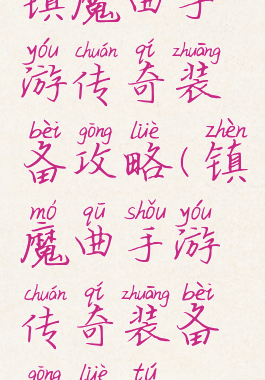 镇魔曲手
yóu chuán qí zhuāng
游传奇装
bèi gōng lüè zhèn
备攻略(镇
mó qū shǒu yóu
魔曲手游
chuán qí zhuāng bèi
传奇装备
gōng lüè tú